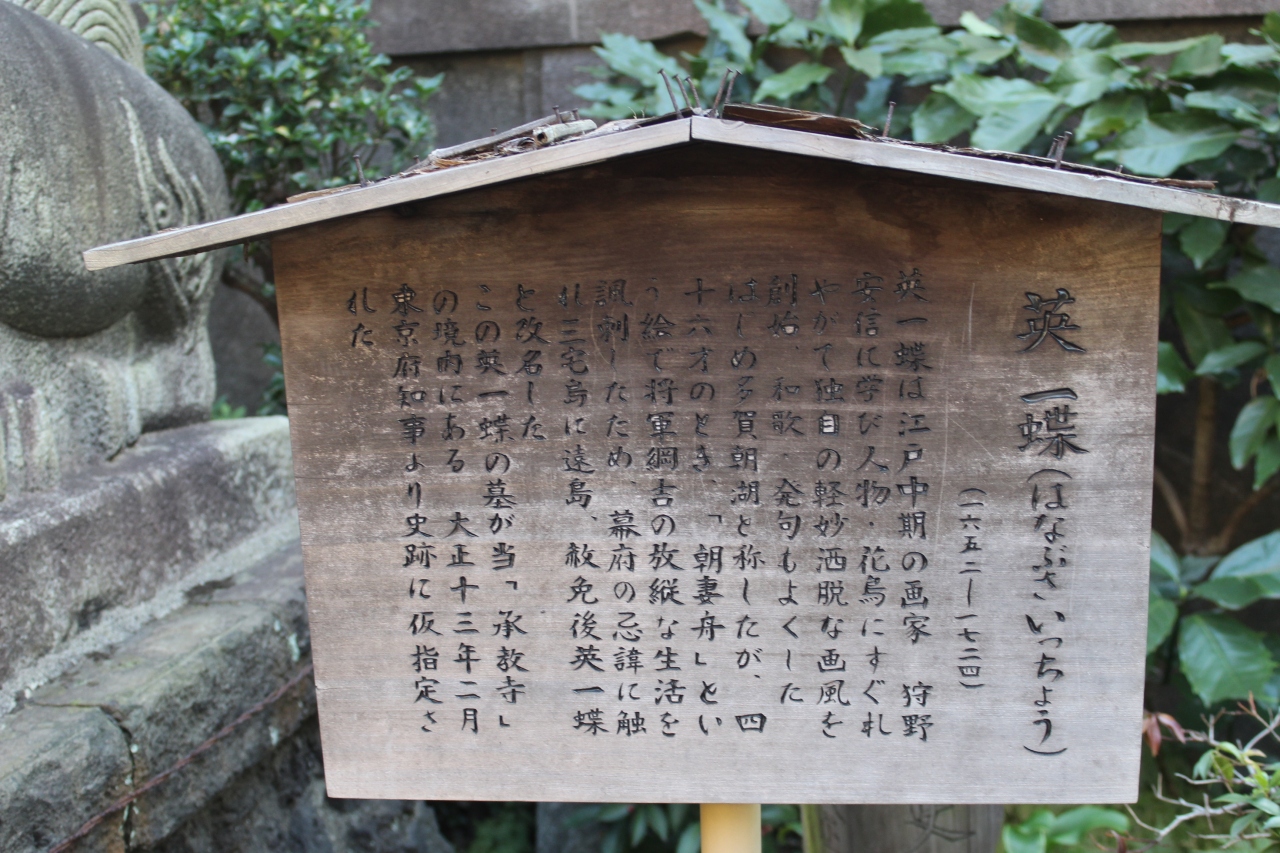 英 一蝶(はなぶさ いっちょう)
(一六五二ー一七二四)
英一蝶は江戸中期の画家 狩野
安信に学び人物・花鳥にすぐれ
やがて独自の軽妙洒脱な画風を
創始、和歌・発句もよくした
はじめ多賀朝湖と称したが、四
十六才のとき、「朝妻舟」とい
う絵で将軍綱吉の放縦な生活を
諷刺したため、幕府の忌諱に触
れ三宅島に遠島、赦免後英一蝶
と改名した
この英一蝶の墓が当「承教寺」
の境内にある 大正十三年二月
東京府知事より史跡に仮指定さ
れた